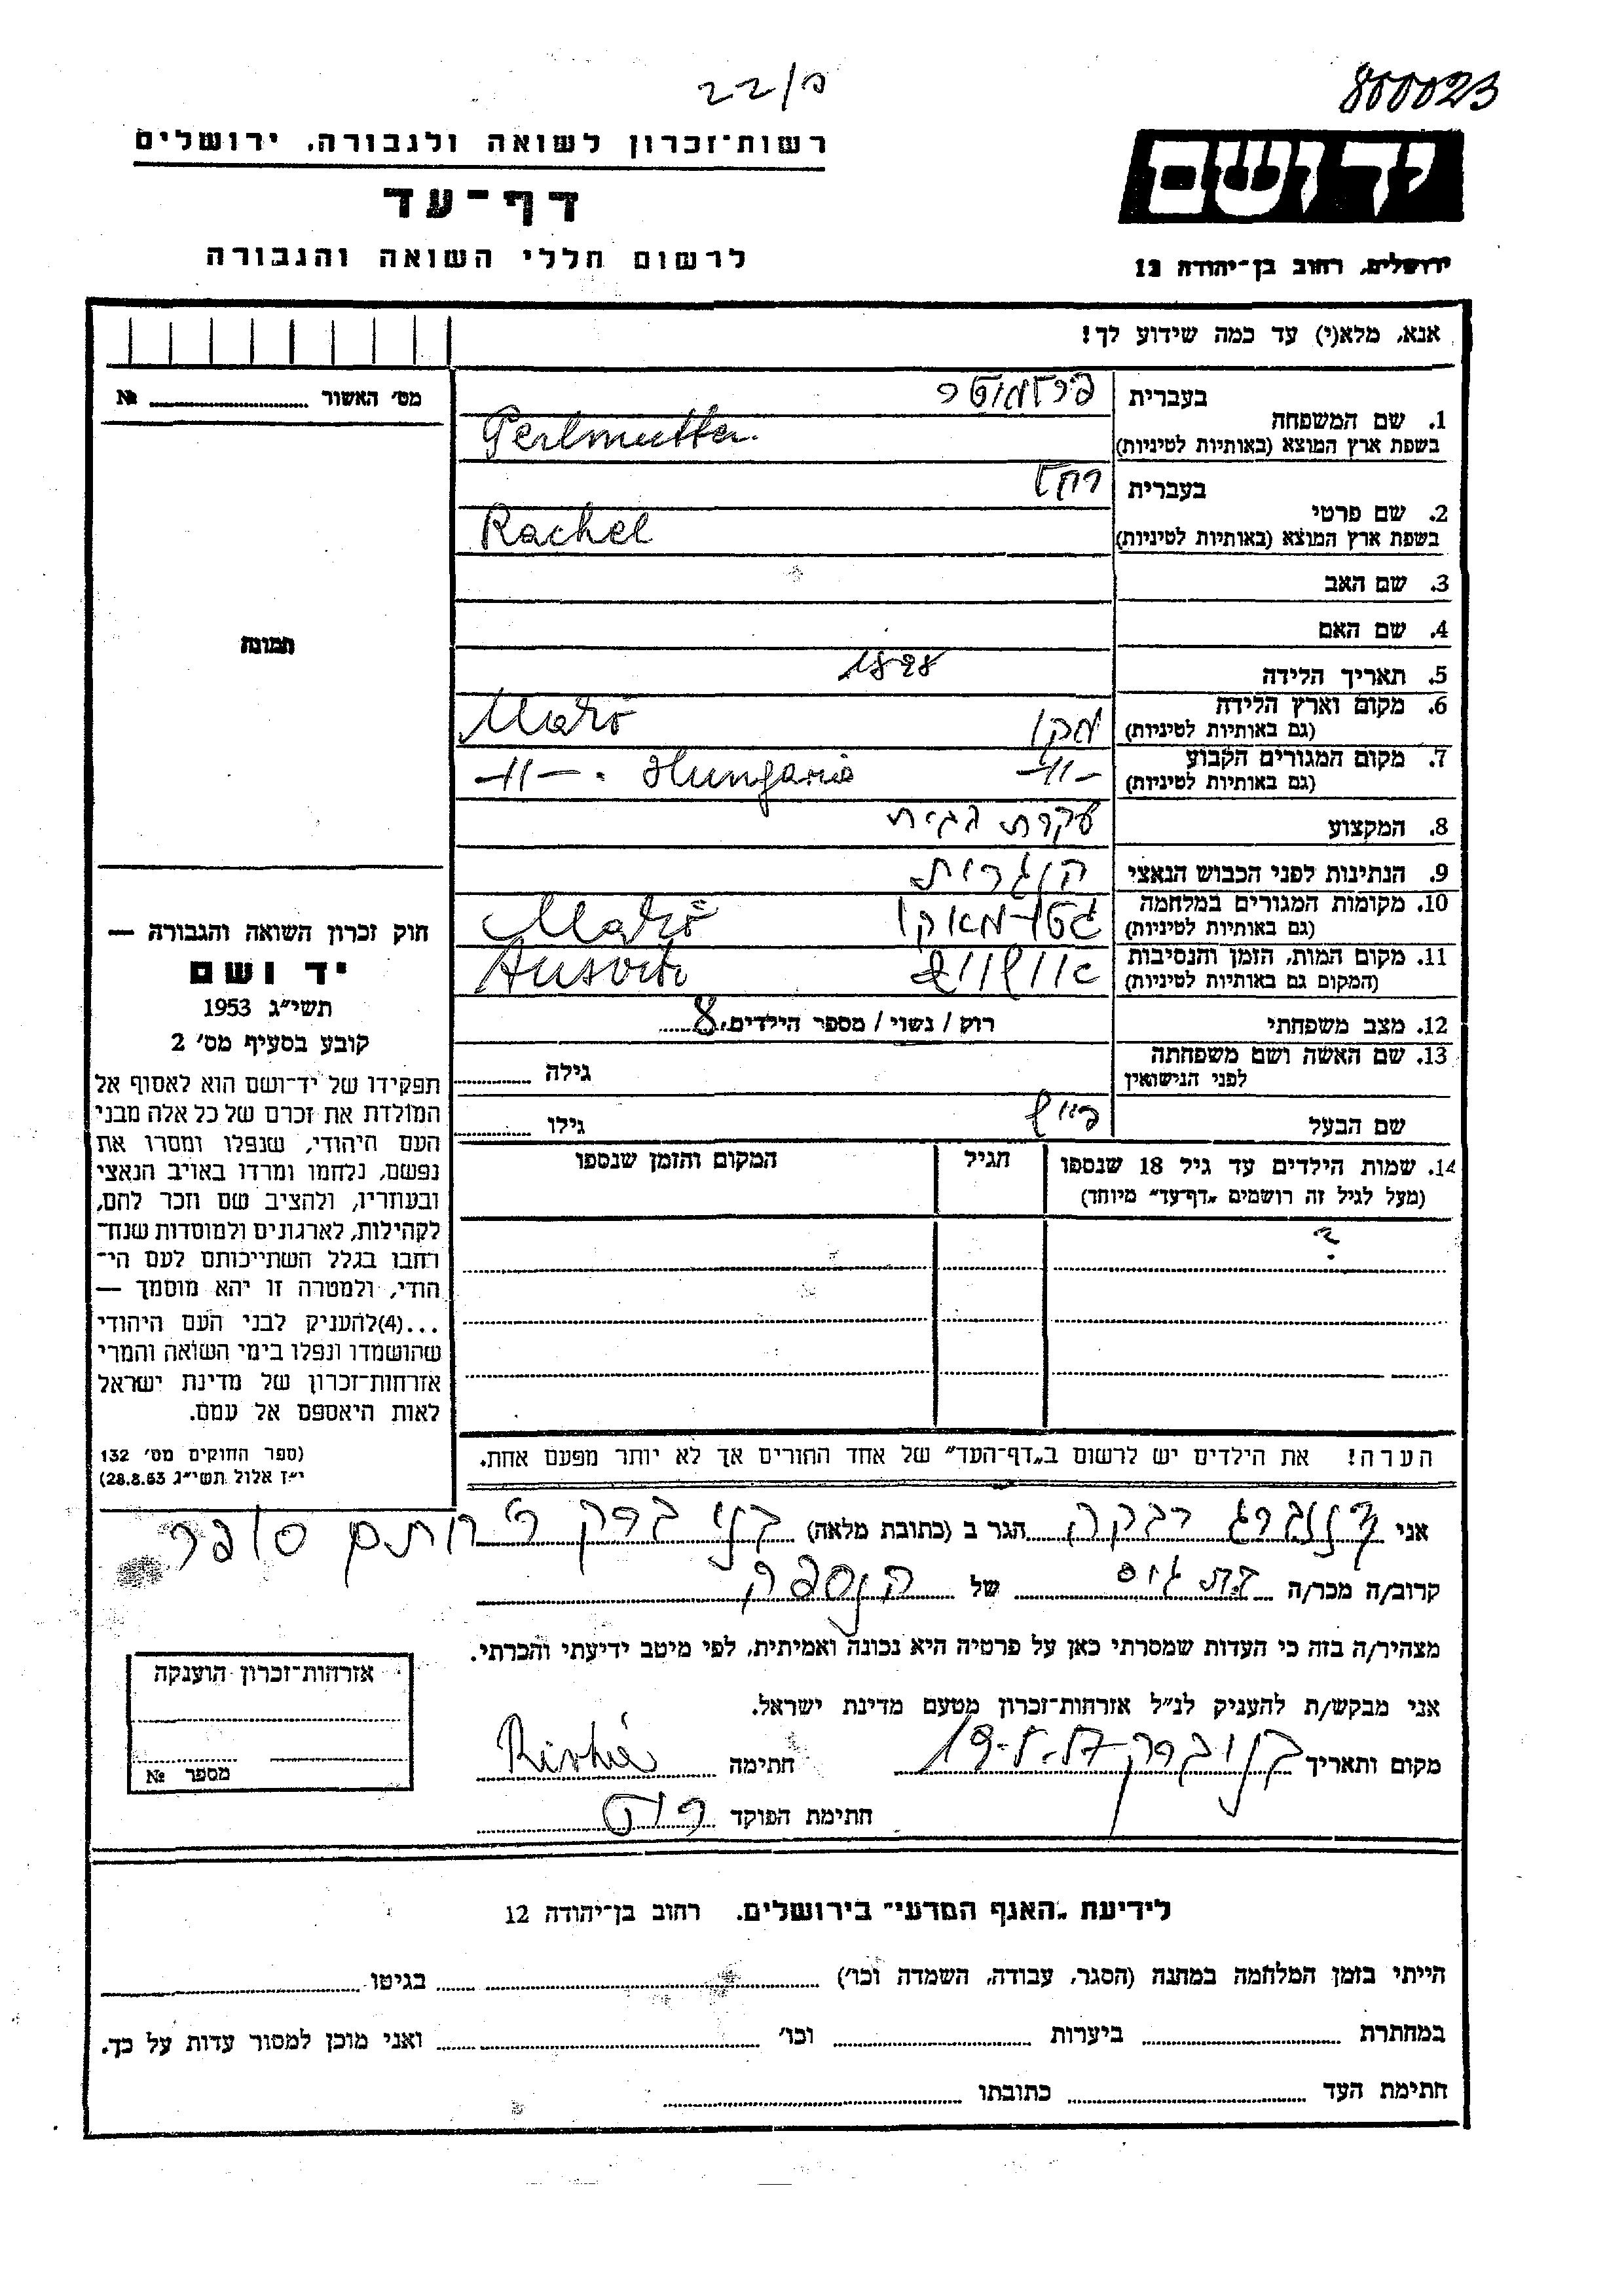 22/מ
800023
רשות־זכרון לשואה ולגבורה, ירושלים
יד ושם
דף־עד
לרשום חללי השואה והגבורה
ירושלים, רחוב בן־יהודה 12
אנא, מלא(י) עד כמה שידוע לך!
מס׳ האשור № ........
1. שם המשפחה
בעברית
פרלמוטר
בשפת ארץ המוצא (באותיות לטיניות)
Perlmutter.
2. שם פרטי
בעברית
רחל
בשפת ארץ המוצא (באותיות לטיניות)
Rachel
3. שם האב
4. שם האם
תמונה
5. תאריך הלידה
1898
6. מקום וארץ הלידה
(גם באותיות לטיניות)
מקו Makó
7. מקום המגורים הקבוע
(גם באותיות לטיניות)
-"- -"-. Hungaria
8. המקצוע
עקרת בית
9. הנתינות לפני הכבוש הנאצי
הונגרית
10. מקומות המגורים במלחמה
(גם באותיות לטיניות)
גטו-מאקו Makó
11. מקום המות, הזמן והנסיבות
(המקום גם באותיות לטיניות)
אושוויץ Ausvitz
12. מצב משפחתי
רוק / נשוי / מספר הילדים 8
13. שם האשה ושם משפחתה
לפני הנישואין
גילה ........
שם הבעל
גילו ........
14. שמות הילדים עד גיל 18 שנספו
(מעל לגיל זה רושמים „דף־עד״ מיוחד)
הגיל
המקום והזמן שנספו
?
הערה! את הילדים יש לרשום ב„דף־העד״ של אחד ההורים אך לא יותר מפעם אחת.
חוק זכרון השואה והגבורה —
יד ושם
תשי״ג 1953
קובע בסעיף מס׳ 2
תפקידו של יד־ושם הוא לאסוף אל
המולדת את זכרם של כל אלה מבני
העם היהודי, שנפלו ומסרו את
נפשם, נלחמו ומרדו באויב הנאצי
ובעוזריו, ולהציב שם וזכר להם,
לקהילות, לארגונים ולמוסדות שנח־
רבו בגלל השתייכותם לעם הי־
הודי, ולמטרה זו יהא מוסמך —
...(4)להעניק לבני העם היהודי
שהושמדו ונפלו בימי השואה והמרי
אזרחות־זכרון של מדינת ישראל
לאות היאספם אל עמם.
(ספר החוקים מס׳ 132
י״ז אלול תשי״ג 28.8.53)
אני רבקה הגר ב (כתובת מלאה) בני ברק חתם סופר
קרוב/ה מכר/ה של הנספה
מצהיר/ה בזה כי העדות שמסרתי כאן על פרטיה היא נכונה ואמיתית, לפי מיטב ידיעתי והכרתי.
אני מבקש/ת להעניק לנ״ל אזרחות־זכרון מטעם מדינת ישראל.
מקום ותאריך בני ברק 19-5-57 חתימה
חתימת הפוקד
אזרחות־זכרון הוענקה
מספר №
לידיעת „האגף המדעי״ בירושלים. רחוב בן־יהודה 12
הייתי בזמן המלחמה במחנה (הסגר, עבודה, השמדה וכו׳) ........ בגיטו ........
במחתרת ........ ביערות ........ וכו׳ ........ ואני מוכן למסור עדות על כך.
חתימת העד ........ כתובתו ........